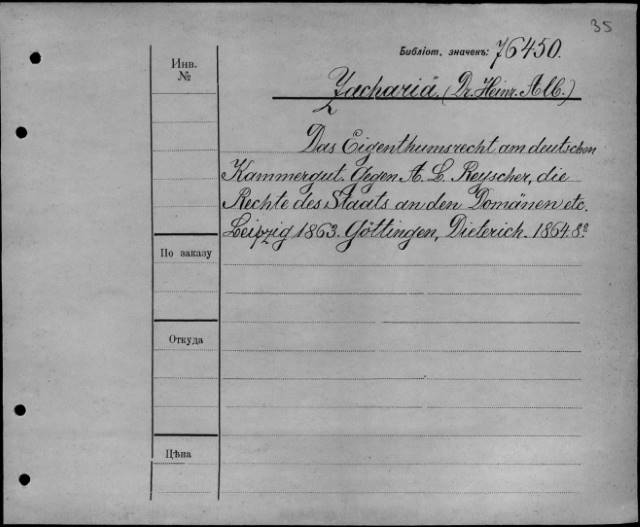 35
Библіот. значекъ: 76450.
Инв.
№
Zachariä (Dr. Heinr. Alb.)
Das Eigenthumsrecht am deutschen
Kammergut. Gegen A. L. Reyscher, die
Rechte des Staats an den Domänen etc.
Leipzig 1863. Göttingen, Dieterich. 1864. 8º
По заказу
Откуда
Цѣна